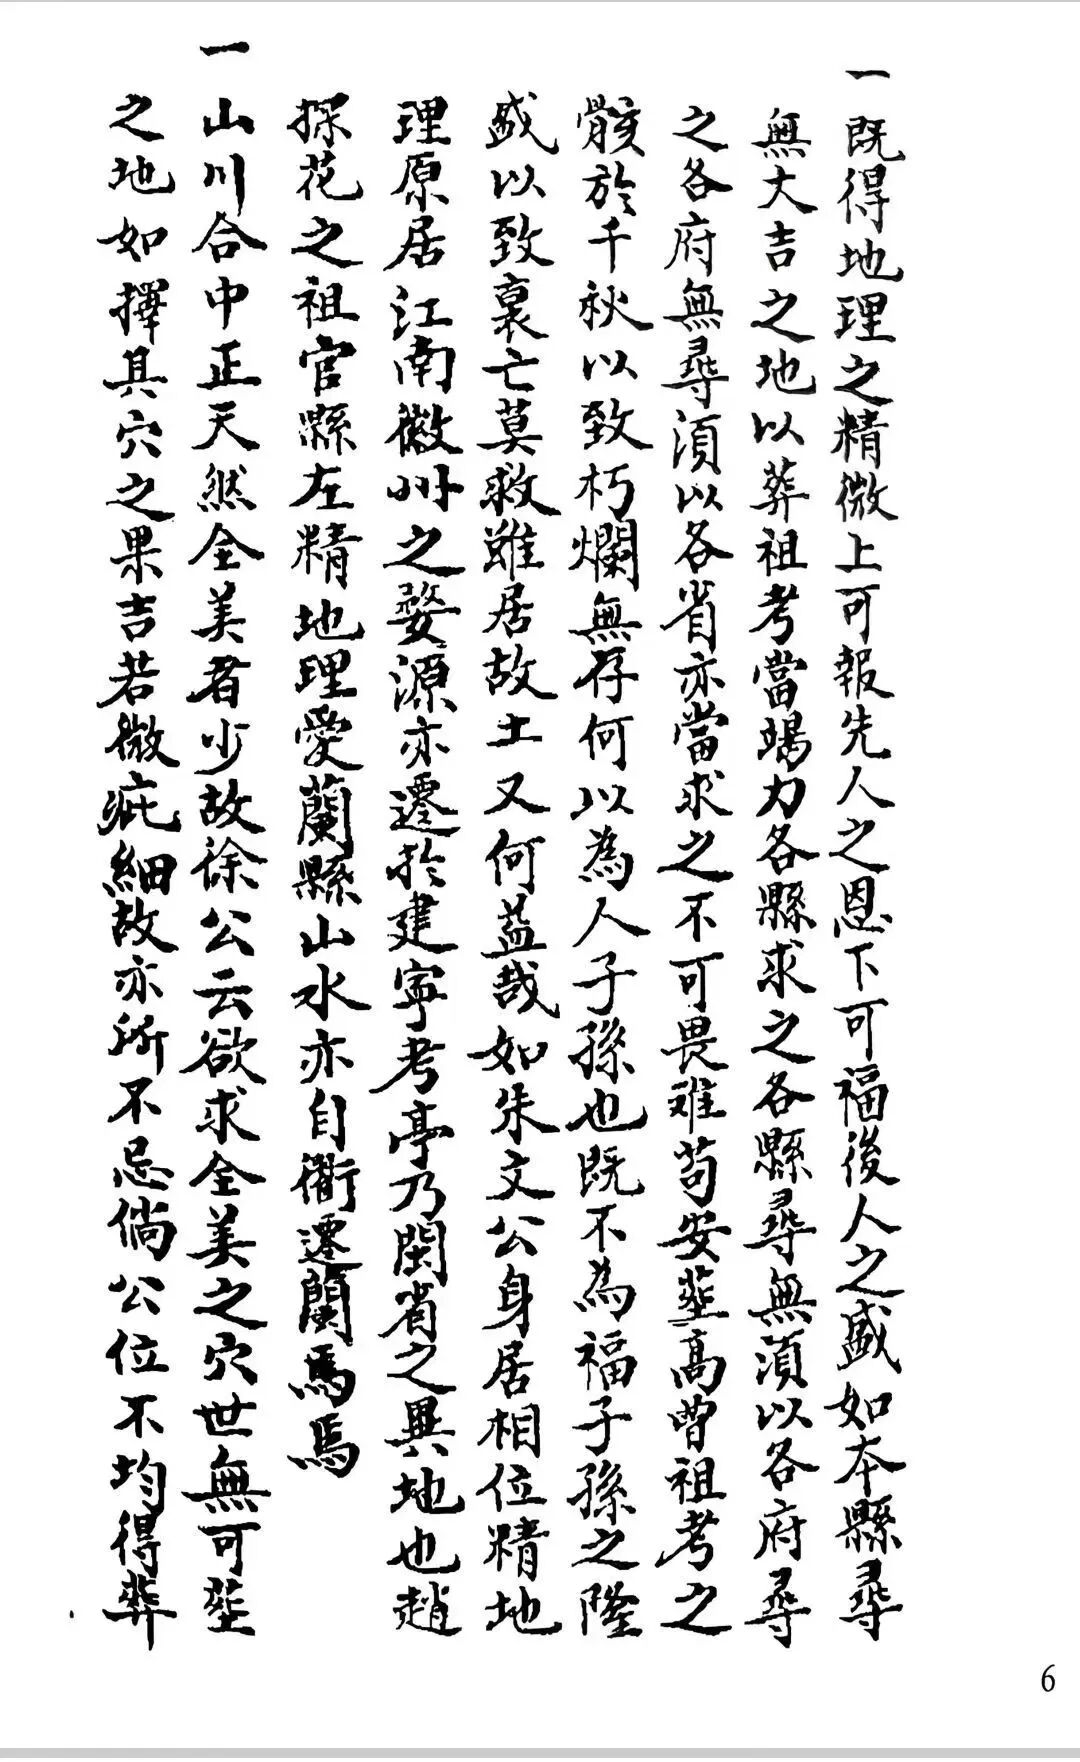 一既得地理之精微上可報先人之恩下可福後人之盛如本縣尋
無大吉之地以葬祖考當竭力各縣求之各縣尋無須以各府尋
之各府無尋須以各省亦當求之不可畏难苟安塟高曾祖考之
骸於千秋以致朽爛無存何以為人子孫也既不為福子孫之隆
盛以致裏亡莫救雖居故土又何益哉如朱文公身居相位精地
理原居江南徽州之婺源亦遷於建寧考亭乃閩省之異地也趙
探花之祖官縣左精地理愛蘭縣山水亦自衢遷蘭焉焉
一山川合中正天然全美者少故徐公云欲求全美之穴世無可塟
之地如擇其穴之果吉若微疵細故亦所不忌倘公位不均得葬
6